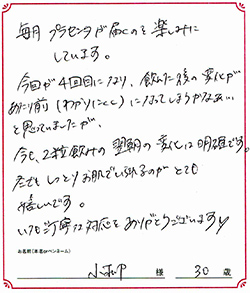 毎月プラセンタが届くのを楽しみに
しています。
今回が4回目になり、飲んだ後の変化が
あたり前(わかりにくく)になってしまうかなぁ…
と思っていましたが、
今も、2粒飲みの翌朝の変化は明確です。
冬でもしっとりお肌でいられるのがとても
嬉しいです。
いつもご丁寧な対応をありがとうございます
お名前(本名orペンネーム)
様 30歳